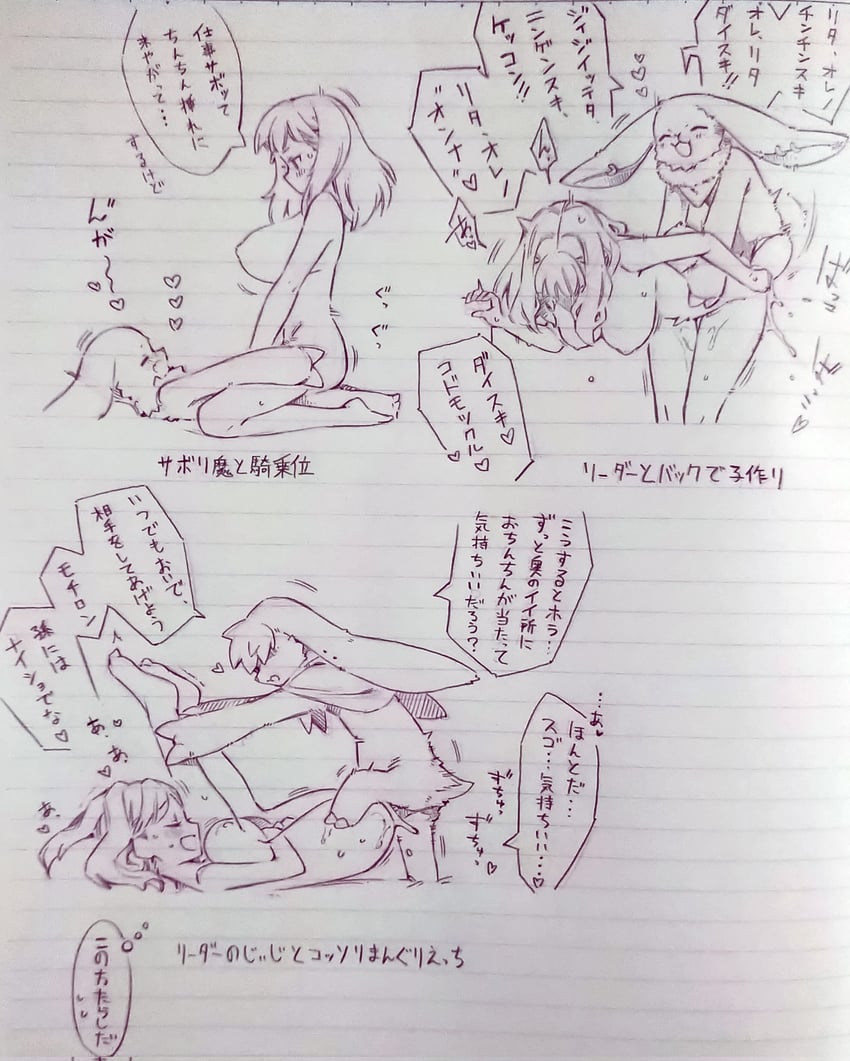 リタ、オレノ
チンチンスキ
オレ、リタ
ダイスキ!!
ジイジイッテタ
ニンゲンスキ、
ケッコン!!
リタ、オレノ
"オンナ"♡
ん
あ♡
ダイスキ♡
コドモツクル♡
リーダーとバックで子作り
仕事サボッて
ちんちん挿れに
来やがって…
するけど
んが〜〜♡
ぐっ
ぐっ
サボリ魔と騎乗位
こうするとホラ…
ずっと奥のイイ所に
おちんちんが当たって
気持ちいいだろう?
…あ♡
ほんとだ…
スゴ…気持ちいい…♡
いつでもおいで、
相手をしてあげよう
モチロン
孫には
ナイショでな♡
あ、♡
あ、♡
あ、♡
ずちゅっ
ずちゅっ♡
リーダーのじぃじとコッソリまんぐりえっち
この方たらしだ